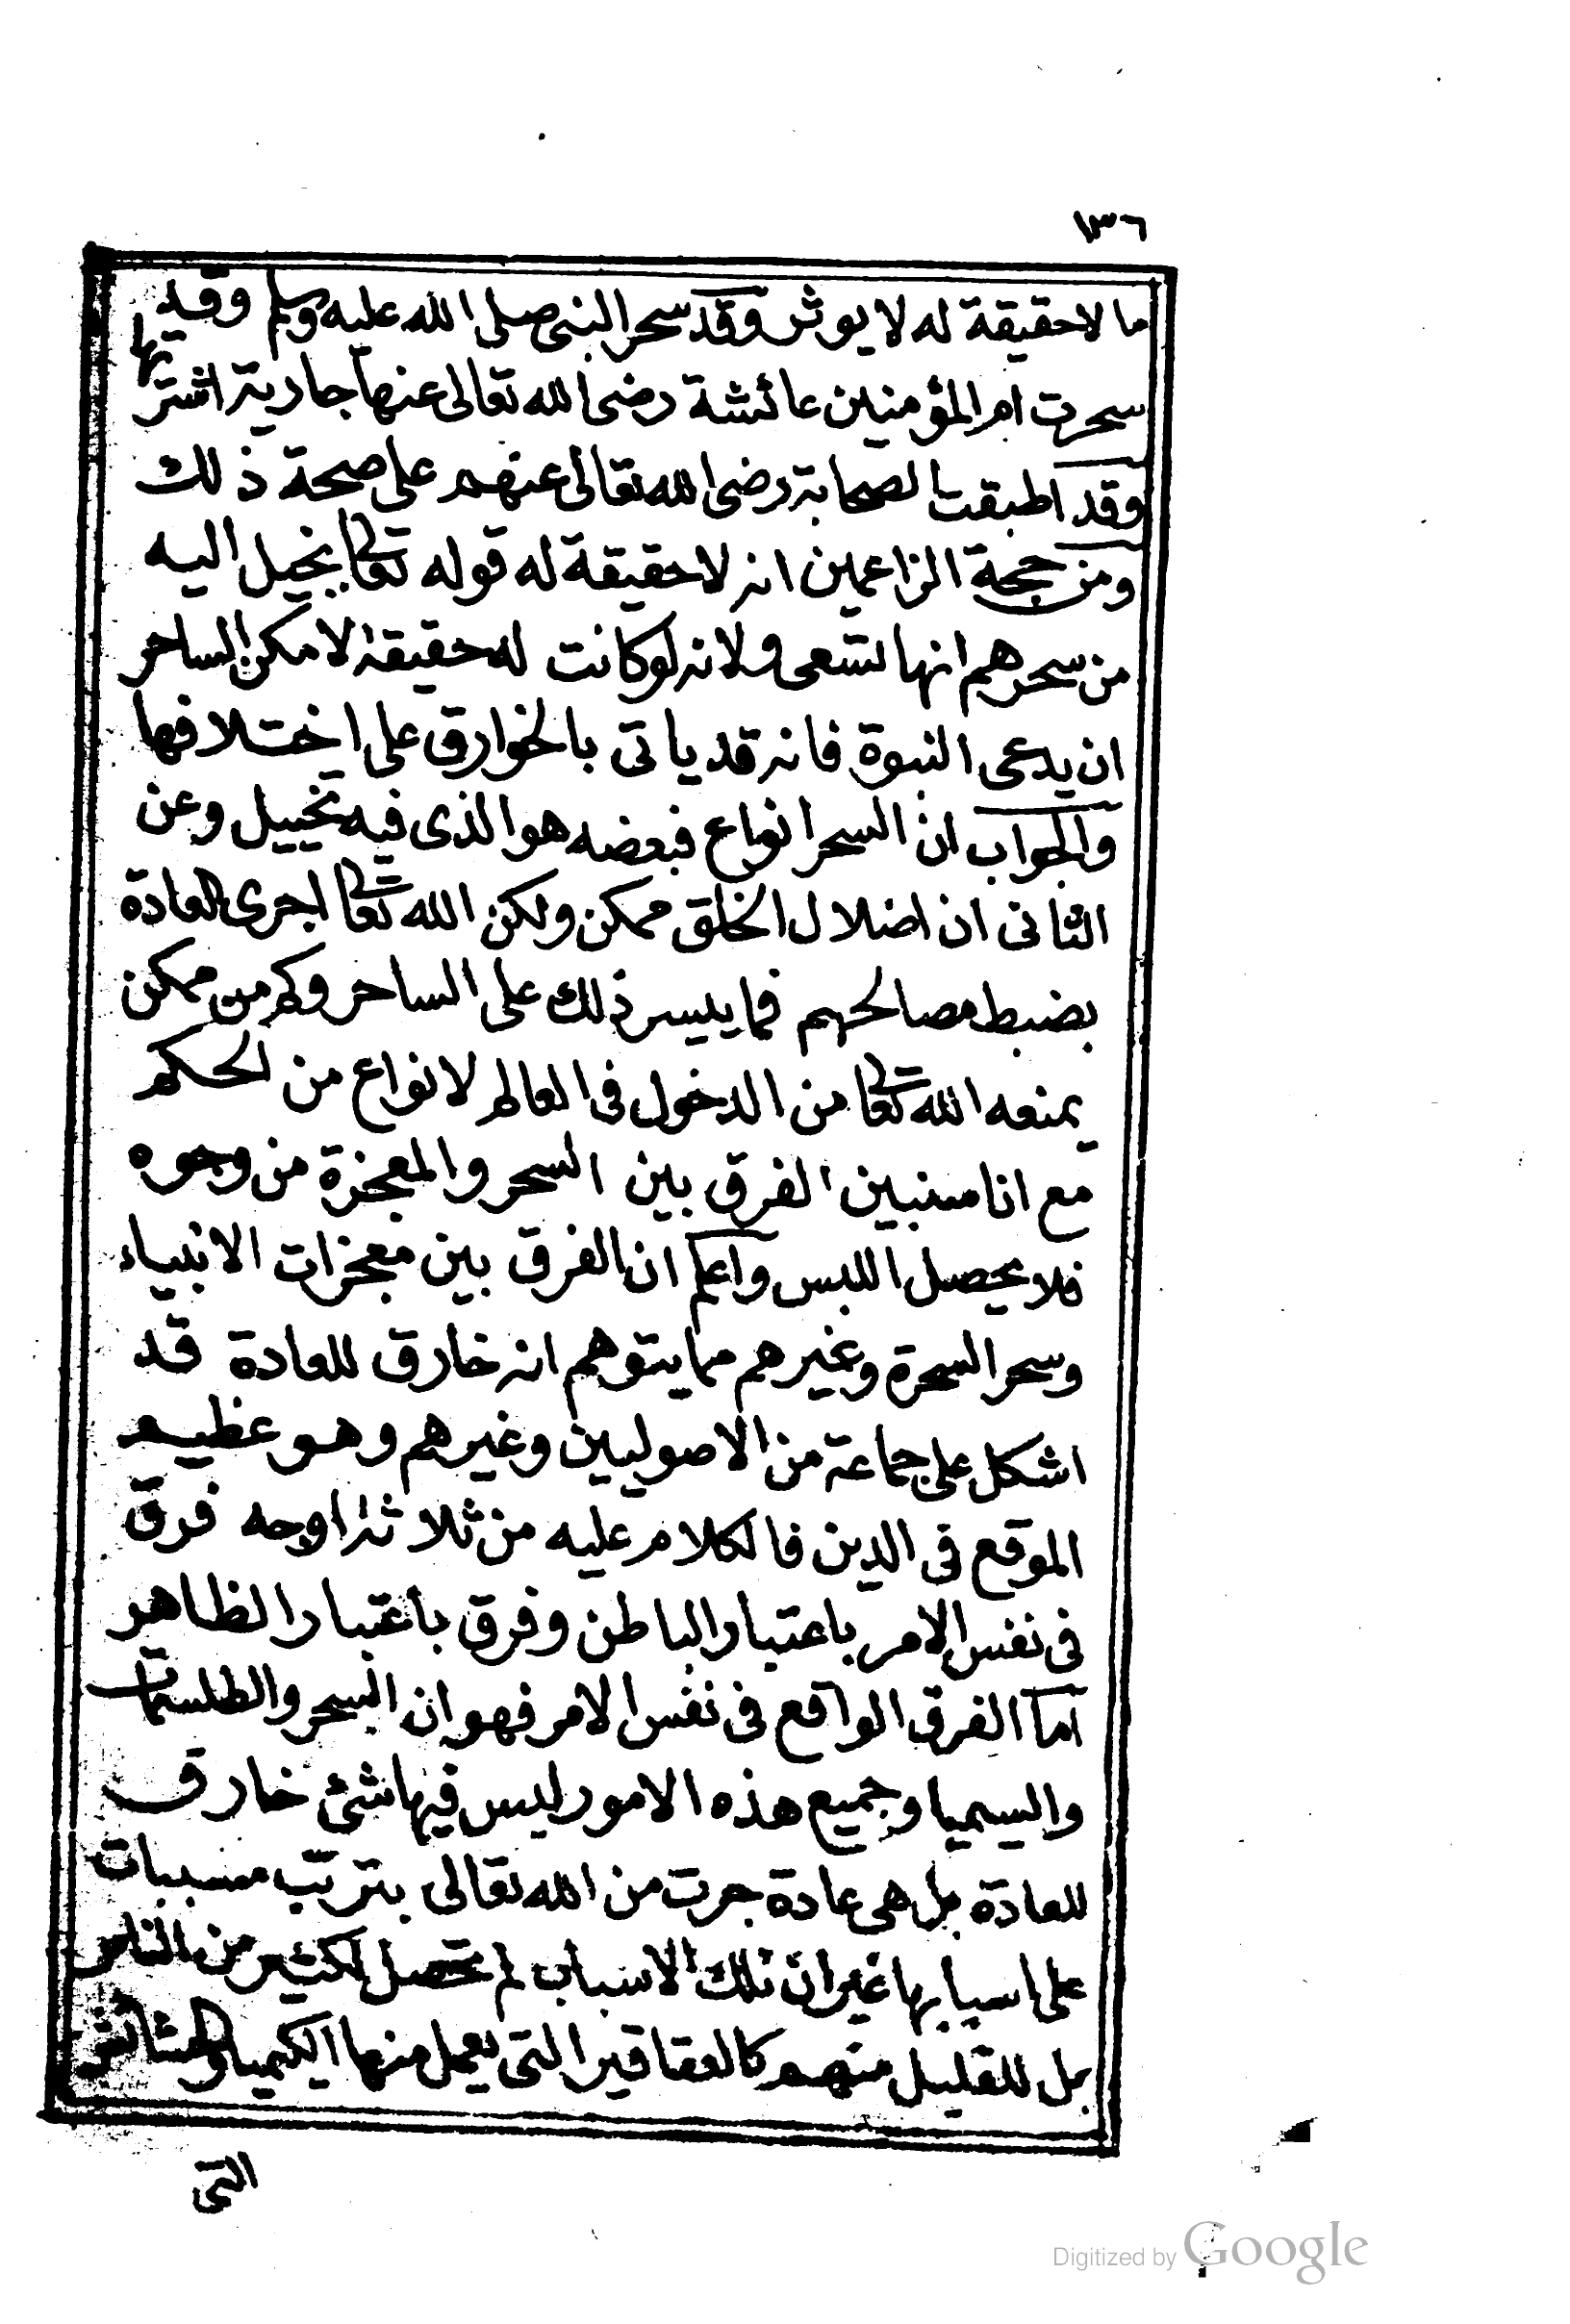 ١٣٦
ما لاحقيقة له لا يوثر وقد سحر النبى صلى الله عليه وسلم وقد
سحرت ام المؤمنين عائشة رضى الله تعالى عنها جارية اشترتها
وقد اطبقت الصحابة رضى الله تعالى عنهم على صحة ذلك
ومن حجة الزاعمين انه لاحقيقة له قوله تعالى يخيل اليه
من سحرهم انها تسعى ولانه لوكانت له حقيقة لامكن الساحر
ان يدعى النبوة فانه قد ياتى بالخوارق على اختلافها
والجواب ان السحر انواع فبعضه هو الذى فيه تخييل وعن
الثانى ان اضلال الخلق ممكن ولكن الله تعالى اجرى العادة
بضبط مصالحهم فما ييسر ذلك على الساحر وكم من ممكن
يمنعه الله تعالى من الدخول فى العالم لانواع من الحكم
مع انا سنبين الفرق بين السحر والمعجزة من وجوه
فلا يحصل اللبس واعلم ان الفرق بين معجزات الانبياء
وسحر السحرة وغيرهم مما يتوهم انه خارق للعادة قد
اشكل على جماعة من الاصوليين وغيرهم وهو عظيم
الموقع فى الدين فالكلام عليه من ثلاثة اوجه فرق
فى نفس الامر باعتبار الباطن وفرق باعتبار الظاهر
اما الفرق الواقع فى نفس الامر فهو ان السحر والطلسمات
والسيميا وجميع هذه الامور ليس فيها شئ خارق
للعادة بل هى عادة جرت من الله تعالى بترتب مسببات
على اسبابها غير ان تلك الاسباب لم تحصل لكثير من الناس
بل للقليل منهم كالعقاقير التى يعمل منها الكيميا والحشائش
التى
Digitized by Google